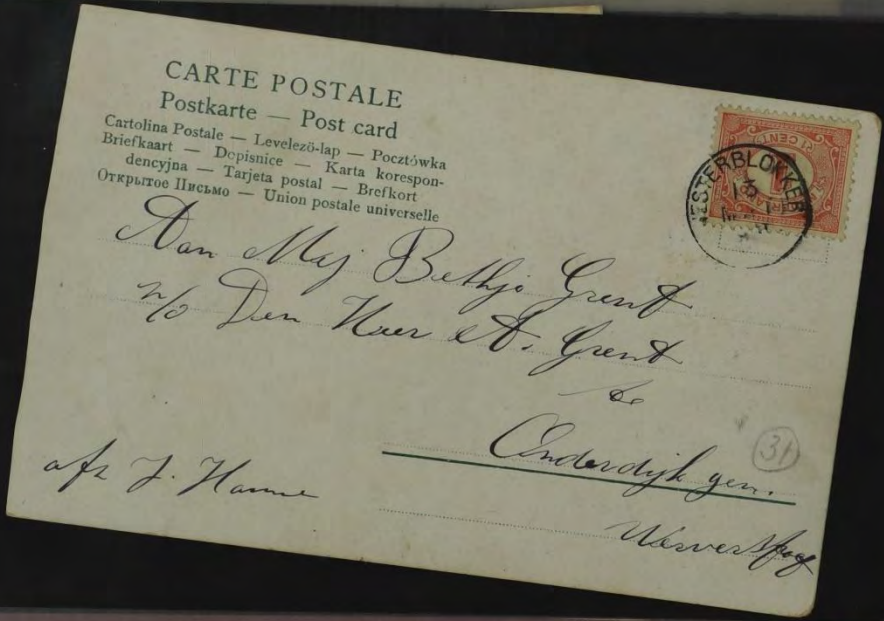 CARTE POSTALE
Postkarte — Post card
Cartolina Postale — Levelező-lap — Pocztówka
Briefkaart — Dopisnice — Karta korespon-
dencyjna — Tarjeta postal — Brefkort
Открытое Письмо — Union postale universelle
1 CENT
WESTERBLOKKER
Aan Mej Bethje Grent
p/a Den Heer A. Grent
te
Onderdijk gem.
Wervershoof
31
afz J. Hamme